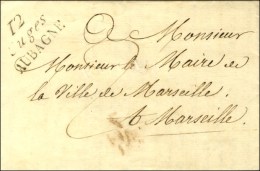 12
Cuges
AUBAGNE
A Monsieur
Monsieur le Maire de
la Ville de Marseille.
A Marseille.